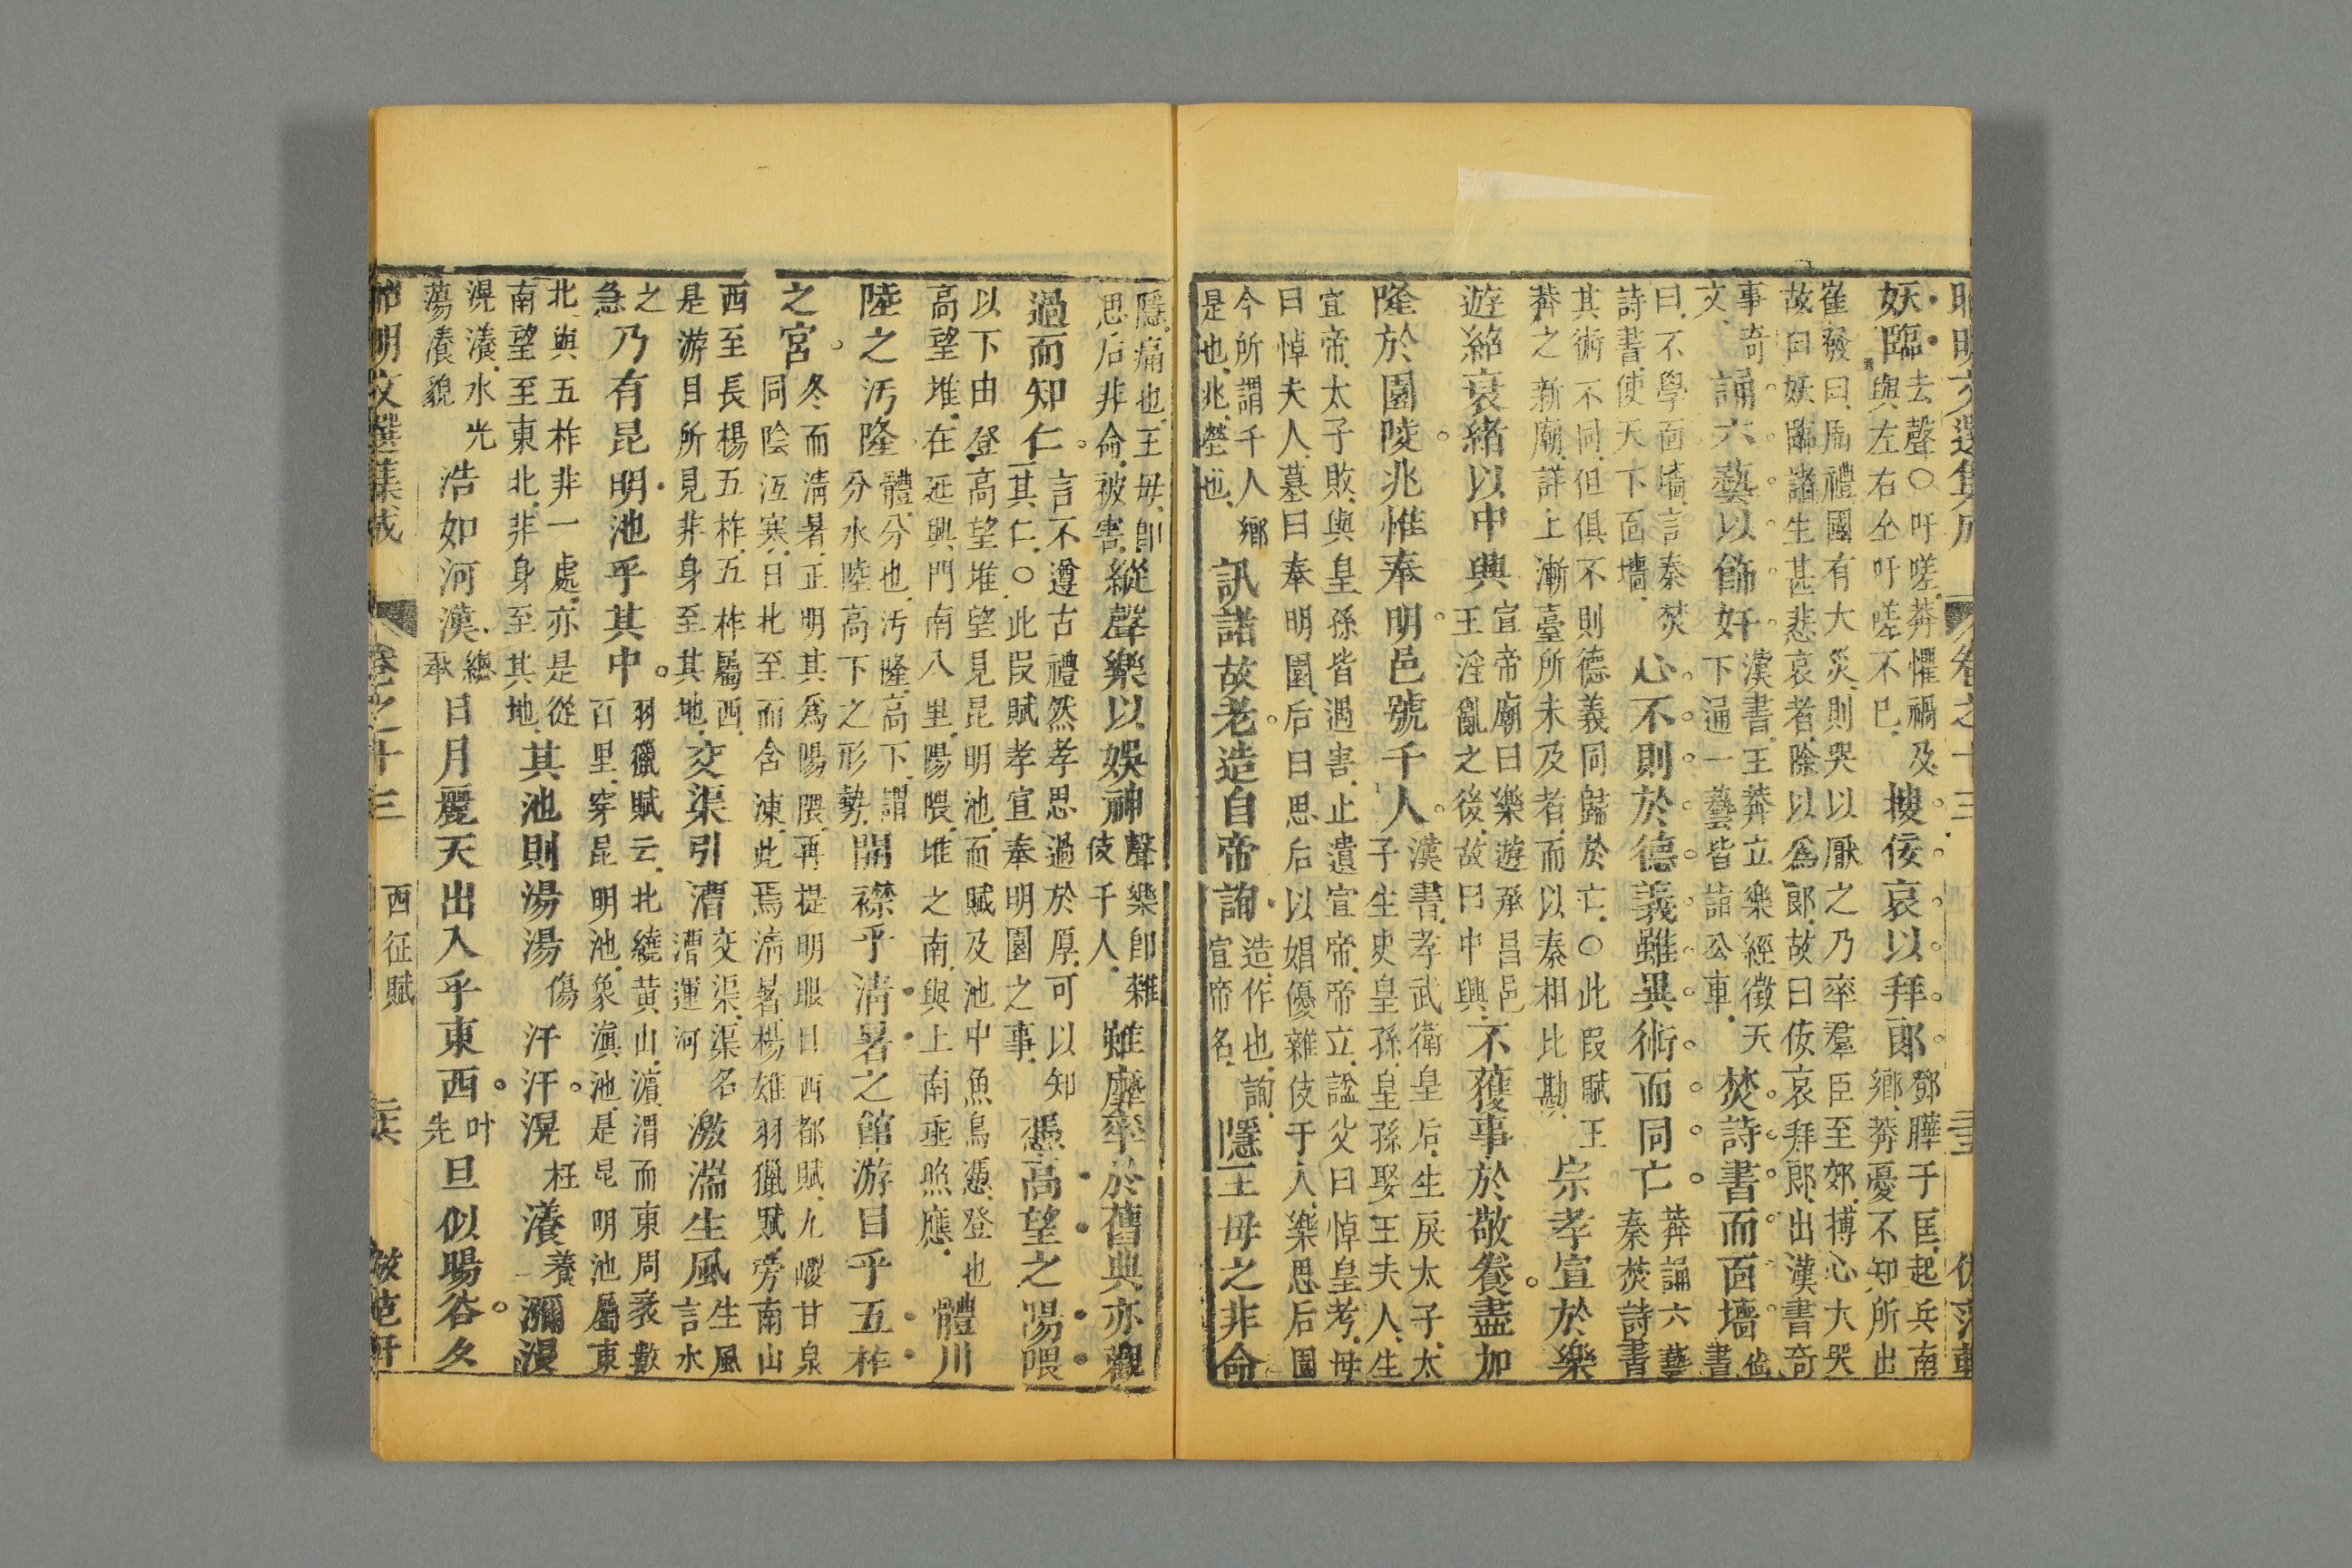 昭明文選集成 卷之十三
妖臨去聲○吁嗟莽懼禍及與左右仝吁嗟不巳搜佞哀以拜郎鄧曄子匡起兵南鄉莽憂不知所出
崔發曰周禮國有大災則哭以厭之乃率羣臣至郊搏心大哭故曰妖臨諸生甚悲哀者除以爲郎故曰佞哀拜郎出漢書奇
事奇文誦六藝以飾奸漢書王莽立樂經徵天下通一藝皆詣公車焚詩書而面墻書
曰不學面墻言秦焚詩書使天下面墻心不則於德義雖異術而同亡莽誦六藝秦焚詩書
其術不同但俱不則德義同歸於亡○此叚賦王莽之新廟詳上漸臺所未及者而以秦相比勘宗孝宣於樂
遊紹衰緒以中興宣帝廟曰樂遊承昌邑王淫亂之後故曰中興不獲事於敬養盡加
隆於園陵兆惟奉明邑號千人漢書孝武衛皇后生戾太子太子生史皇孫皇孫娶王夫人生
宣帝太子敗與皇孫皆遇害止遺宣帝帝立謚父曰悼皇考母曰悼夫人墓曰奉明園后曰思后以娼優雜伎千人樂思后園
今所謂千人鄉是也兆塋也訊諸故老造自帝詢造作也詢宣帝名隱王母之非命
隱痛也王母卽思后非命被害縱聲樂以娛神聲樂卽雜伎千人雖靡率於舊典亦觀
過而知仁言不遵古禮然孝思過於厚可以知其仁○此叚賦孝宣奉明園之事憑高望之陽隈
以下由登高望堆望見昆明池而賦及池中魚鳥憑登也高望堆在延興門南八里陽隈堆之南與上南垂照應體川
陸之汚隆體分也汚隆高下謂分水陸高下之形勢開襟乎清暑之館游目乎五柞
之宮冬而清暑正明其爲陽隈再提明眼目西都賦九嵕甘泉同陰沍寒日北至而含凍此焉清暑楊雄羽獵賦旁南山
西至長楊五柞五柞屬西是游目所見非身至其地交渠引漕交渠渠名漕運河激湍生風生風言水
之急乃有昆明池乎其中羽獵賦云北繞黃山濵渭而東周袤數百里穿昆明池象滇池是昆明池屬東
北與五柞非一處亦是從南望至東北非身至其地其池則湯湯傷汗汗滉枉瀁養瀰漫
滉瀁水光蕩瀁貌浩如河漢總承日月麗天出入乎東西叶先旦似暘谷夕
昭明文選集成 卷之十三 西征賦